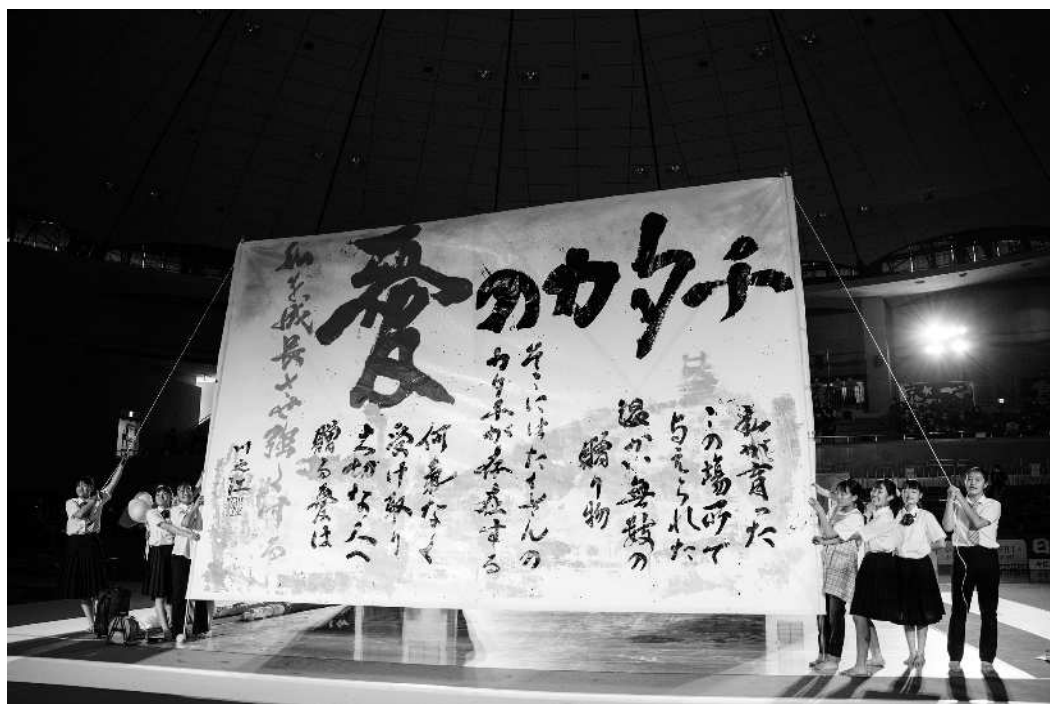 愛のカタチ
私が育った
この場所で
与えられた
温かい無数の
贈り物
そこにはたくさんの
カタチが存在する
何気なく
受け取り
大切な人へ
贈る愛は
私を成長させ強く
川之江